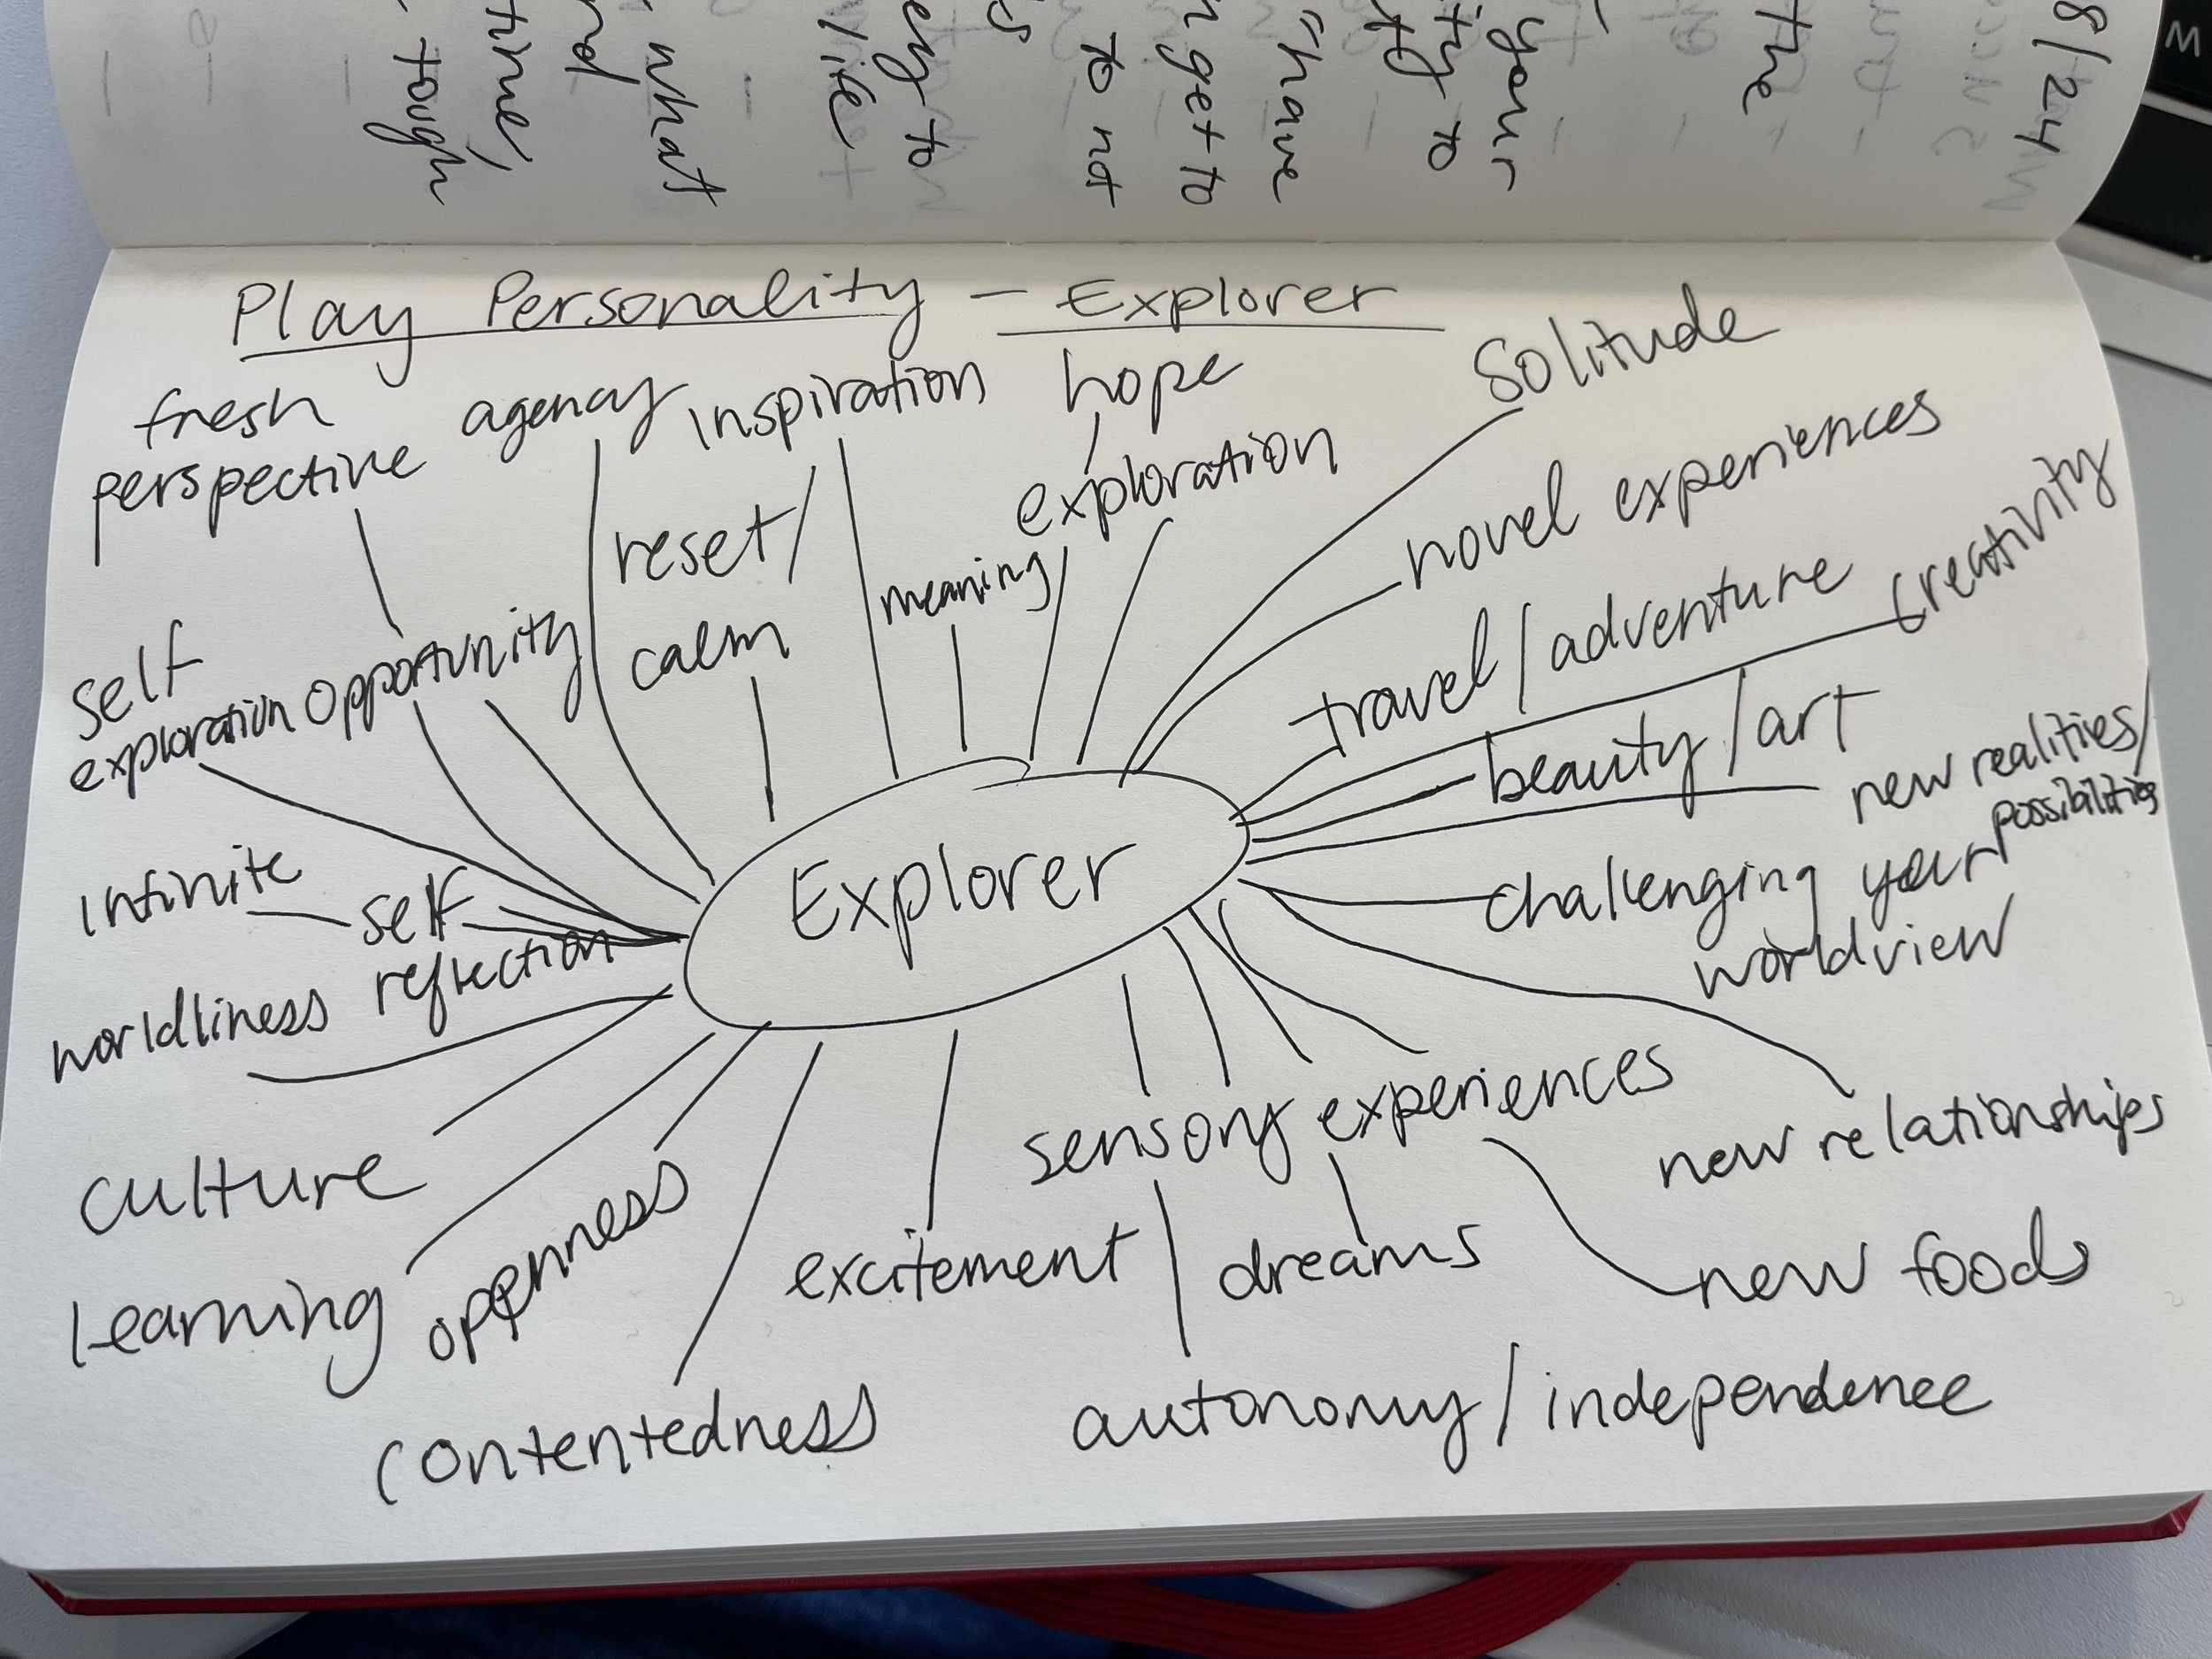 8/24
the
your
ity to
"have
n get to
to not
ey to
what
nd
time,
- tough
Play Personality - Explorer
fresh
perspective
agency
inspiration
hope
exploration
solitude
novel experiences
travel/adventure
creativity
beauty/art
new realities/
possibilities
challenging your
worldview
new relationships
new foods
sensory experiences
dreams
autonomy/independence
excitement
contentedness
oppenness
learning
culture
worldliness
self
reflection
infinite
self
exploration
opportunity
reset/
calm
meaning
Explorer
W